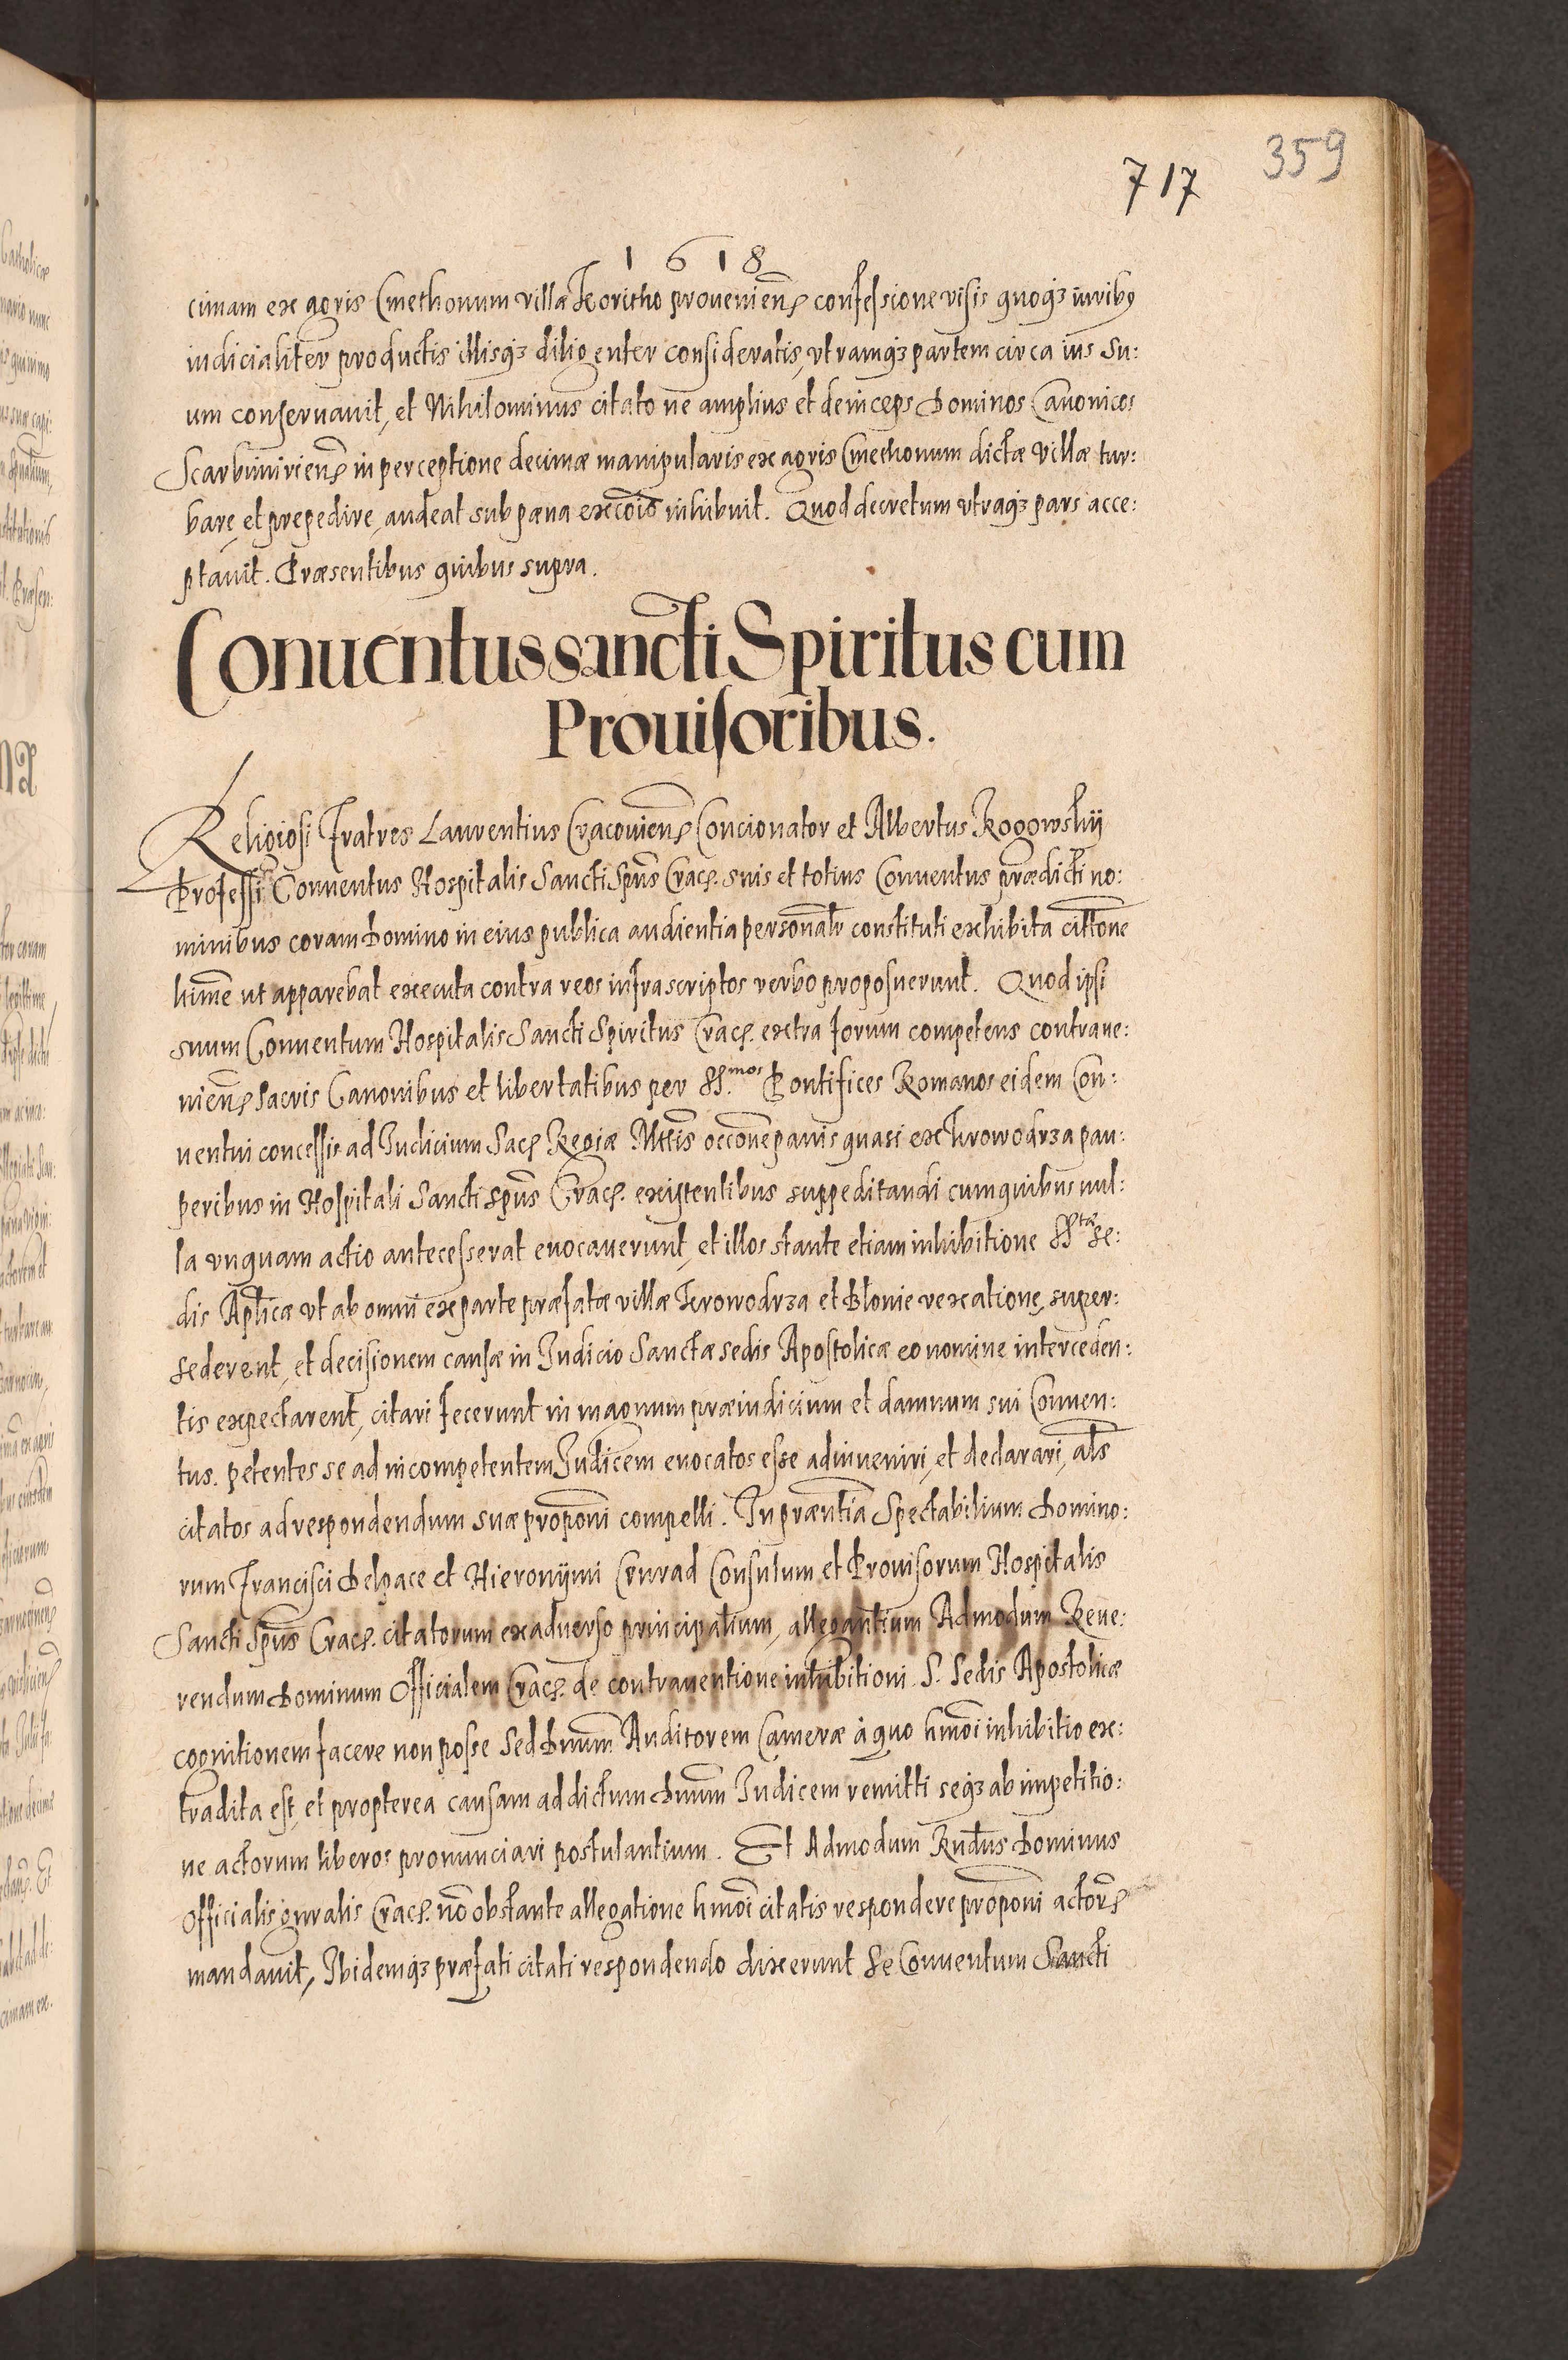 359
717
1618
cimam ex agris Cmethonum villæ Koritho proueniens confessione visis quoqꝫ iuribꝰ
iudicialiter productis illisqꝫ diligenter consideratis, vtramqꝫ partem circa ius su:
um conseruauit, et Nihilominus citato ne amplius et deinceps Dominos Canonicos
Scarbimiriens in perceptione decimæ manipularis ex agris Cmethonum dictæ villæ tur:
bare, et prepedire, audeat sub pæna excõis inhibuit. Quod decretum vtraqꝫ pars acce:
ptauit. Præsentibus quibus supra.
Conuentus sancti Spiritus cum
Prouisoribus.
Religiosi Fratres Laurentius Cracouiens Concionator et Albertus Rogowskij
Professi Conuentus Hospitalis Sancti Spũs Crac. suis et totius Conuentus prædicti no:
minibus coram Domino in eius publica audientia personalr constituti exhibita cittõne
himẽ ut apparebat executa contra reos infrascriptos verbo proposuerunt. Quod ipsi
suum Conuentum Hospitalis Sancti Spiritus Crac. extra forum competens contraue:
niens sacris Canonibus et libertatibus per SS.mos Pontifices Romanos eidem Con:
uentui concessis ad Iudicium Sac. Regiæ Mttis occõne panis quasi ex Krowodrza pau:
peribus in Hospitali Sancti Spũs Crac. existentibus suppeditandi cum quibus nul:
la vnquam actio antecesserat euocauerunt, et illos stante etiam inhibitione SS.tæ Se:
dis Aplicæ vt ab omni ex parte præfatæ villæ Krowodrza et Blonie vexatione, super:
sederent, et decisionem causæ in Iudicio Sanctæ sedis Apostolicæ eo nomine interceden:
tis expectarent, citari fecerunt in magnum præiudicium et damnum sui Conuen:
tus. petentes se ad incompetentem Iudicem euocatos esse adinueniri, et declarari, als
citatos ad respondendum suæ proponi compelli. In præntia Spectabilium Domino:
rum Francisci Delpace et Hieronijmi Cyurad Consulum et Prouisorum Hospitalis
Sancti Spũs Crac. citatorum ex aduerso principalium, allegantium Admodum Reue:
rendum Dominum Officialem Crac. de contrauentione inhibitioni S. Sedis Apostolicæ
cognitionem facere non posse sed Dnum Auditorem Cameræ à quo hmõi inhibitio ex:
tradita est, et propterea causam ad dictum Dnum Iudicem remitti seqꝫ ab impetitio:
ne actorum liberos pronunciari postulantium. Et Admodum Rndus Dominus
Officialis gnralis Crac. nõ obstante allegatione hmõi citatis respondere proponi actors
mandauit, Ibidemqꝫ præfati citati respondendo dixerunt se Conuentum Sancti